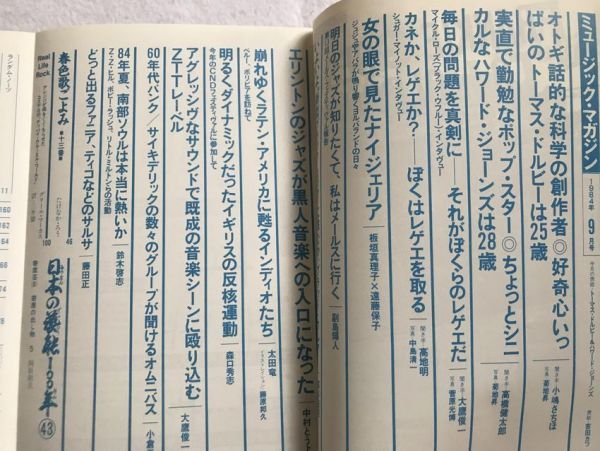 ミュージック・マガジン
1984年
9月号
オトギ話的な科学の創作者◎好奇心いっ
ぱいのトーマス・ドルビーは25歳
聞き手・小嶋さちほ
写真・菊地昇
実直で勤勉なポップ・スター◎ちょっとシニ
カルなハワード・ジョーンズは28歳
聞き手・高橋健太郎
写真・菊地昇
毎日の問題を真剣に――それがぼくらのレゲエだ
マイケル・ローズ(ブラック・ウフルー)・インタヴュー
聞き手・大鷹俊一
写真・菅原光博
カネか、レゲエか?――ぼくはレゲエを取る
シュガー・マイノット・インタヴュー
聞き手・高地明
写真・中島清一
女の眼で見たナイジェリア
板垣真理子×遠藤保子
明日のジャズが知りたくて、私はメールスに行く
副島輝人
エリントンのジャズが黒人音楽への入口になった
中村とう
崩れゆくラテン・アメリカに甦るインディオたち
ペルー、ボリビアを訪ねて
太田竜
イラストレイション・藤原邦久
明るくダイナミックだったイギリスの反核運動
今年のCNDフェスティヴァルに参加して
森口秀志
アグレッシヴなサウンドで既成の音楽シーンに殴り込む
ZTTレーベル
大鷹俊一
60年代パンク/サイキデリックの数々のグループが聞けるオムニバス
小倉
84年夏、南部ソウルは本当に熱いか
Z・Z・ヒル、ボビー・ラッシュ、リトル・ミルトンらの活動
鈴木啓志
どっと出るファニア、ティコなどのサルサ
藤田正
春色歌ごよみ
十三番
46
Real Life Rock
グリール・マーカス
100
日本の藝能100年
43
ランダム・ノーツ
11
160
162
164
66